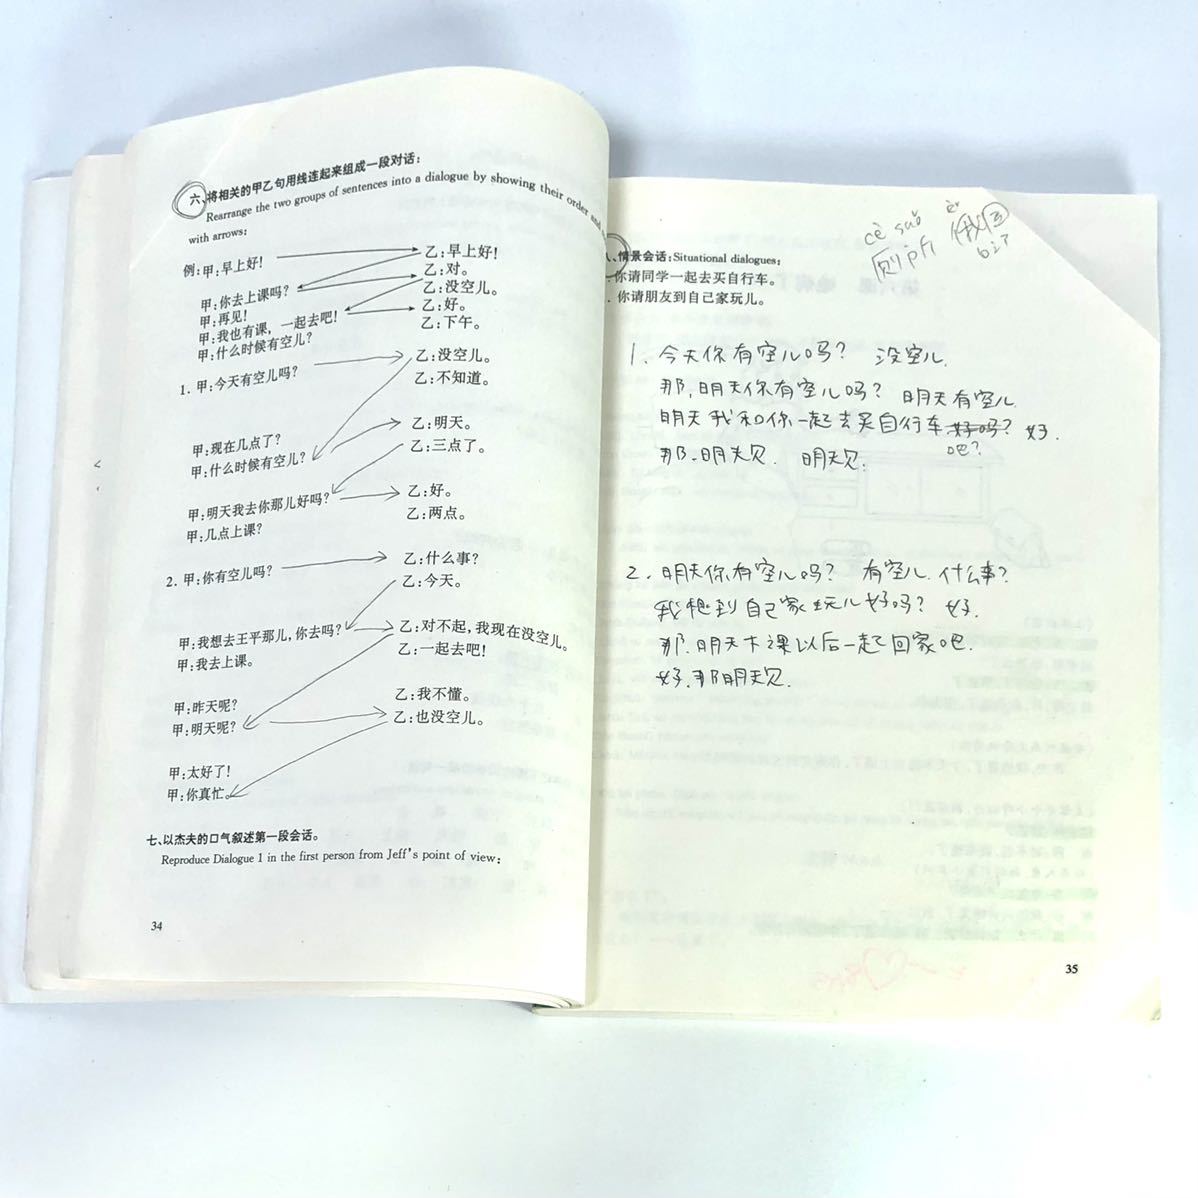 六、将相关的甲乙句用线连起来组成一段对话：
Rearrange the two groups of sentences into a dialogue by showing their order and
with arrows:
例：甲：早上好！
乙：早上好！
乙：对。
甲：你去上课吗？
乙：没空儿。
甲：再见！
乙：好。
甲：我也有课，一起去吧！
乙：下午。
甲：什么时候有空儿？
1. 甲：今天有空儿吗？
乙：没空儿。
乙：不知道。
甲：现在几点了？
乙：明天。
甲：什么时候有空儿？
乙：三点了。
甲：明天我去你那儿好吗？
乙：好。
甲：几点上课？
乙：两点。
2. 甲：你有空儿吗？
乙：什么事？
乙：今天。
甲：我想去王平那儿，你去吗？
乙：对不起，我现在没空儿。
甲：我去上课。
乙：一起去吧！
甲：昨天呢？
乙：我不懂。
甲：明天呢？
乙：也没空儿。
甲：太好了！
甲：你真忙。
七、以杰夫的口气叙述第一段会话。
Reproduce Dialogue 1 in the first person from Jeff's point of view:
34
cè suǒ
厕所
è
俄
情景会话：Situational dialogues:
你请同学一起去买自行车。
你请朋友到自己家玩儿。
1. 今天你有空儿吗？ 没空儿.
那，明天你有空儿吗？ 明天有空儿.
明天我和你一起去买自行车好吗？ 好.
吧？
那.明天见. 明天见.
2. 明天你有空儿吗？ 有空儿.什么事？
我想到自己家玩儿好吗？ 好.
那.明天下课以后一起回家吧.
好.那明天见.
35